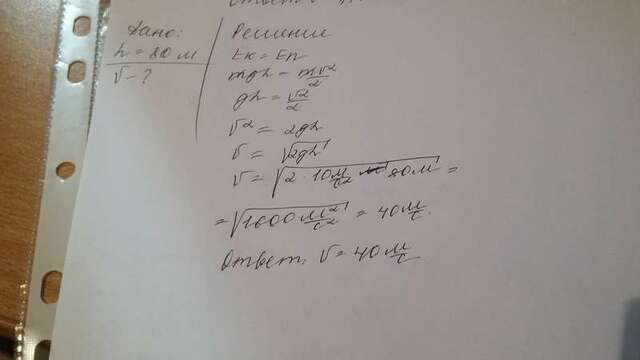 Дано:
h = 80 м
v - ?
Решение
Eк = Eп
mgh = mv²/2
gh = v²/2
v² = 2gh
v = √2gh
v = √2 · 10 м/с² 80 м =
= √1600 м²/с² = 40 м/с.
Ответ: v = 40 м/с